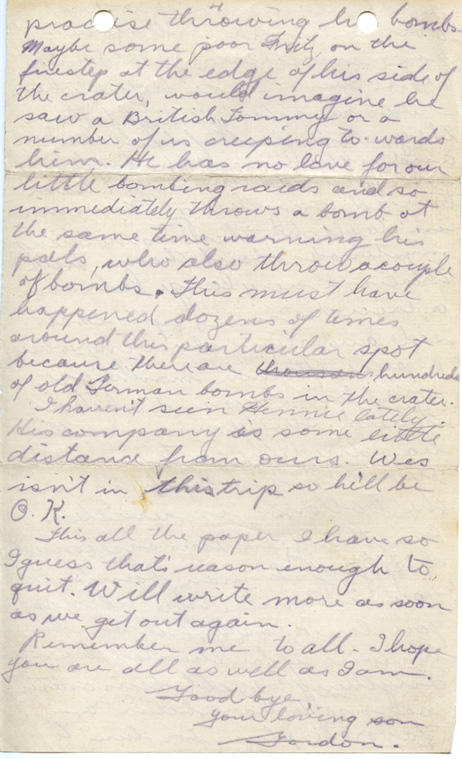 practise throwing his bombs.
Maybe some poor Fritz, on the
firestep at the edge of his side of
the crater, would imagine he
saw a British Tommy or a
number of us creeping to-wards
him. He has no love for our
little bombing raids and so
immediately throws a bomb at
the same time warning his
pals, who also throw a couple
of bombs. This must have
happened dozens of times
around this particular spot
because there are hundreds
of old German bombs in the crater.
I haven't seen lately.
His company is some little
distance from ours. Wes
isn't in this trip so he'll be
O.K.
This all the paper I have so
I guess that's reason enough to
quit. Will write more as soon
as we get out again.
Remember me to all - I hope
you are all as well as I am.
Good bye
Your loving son
Gordon.